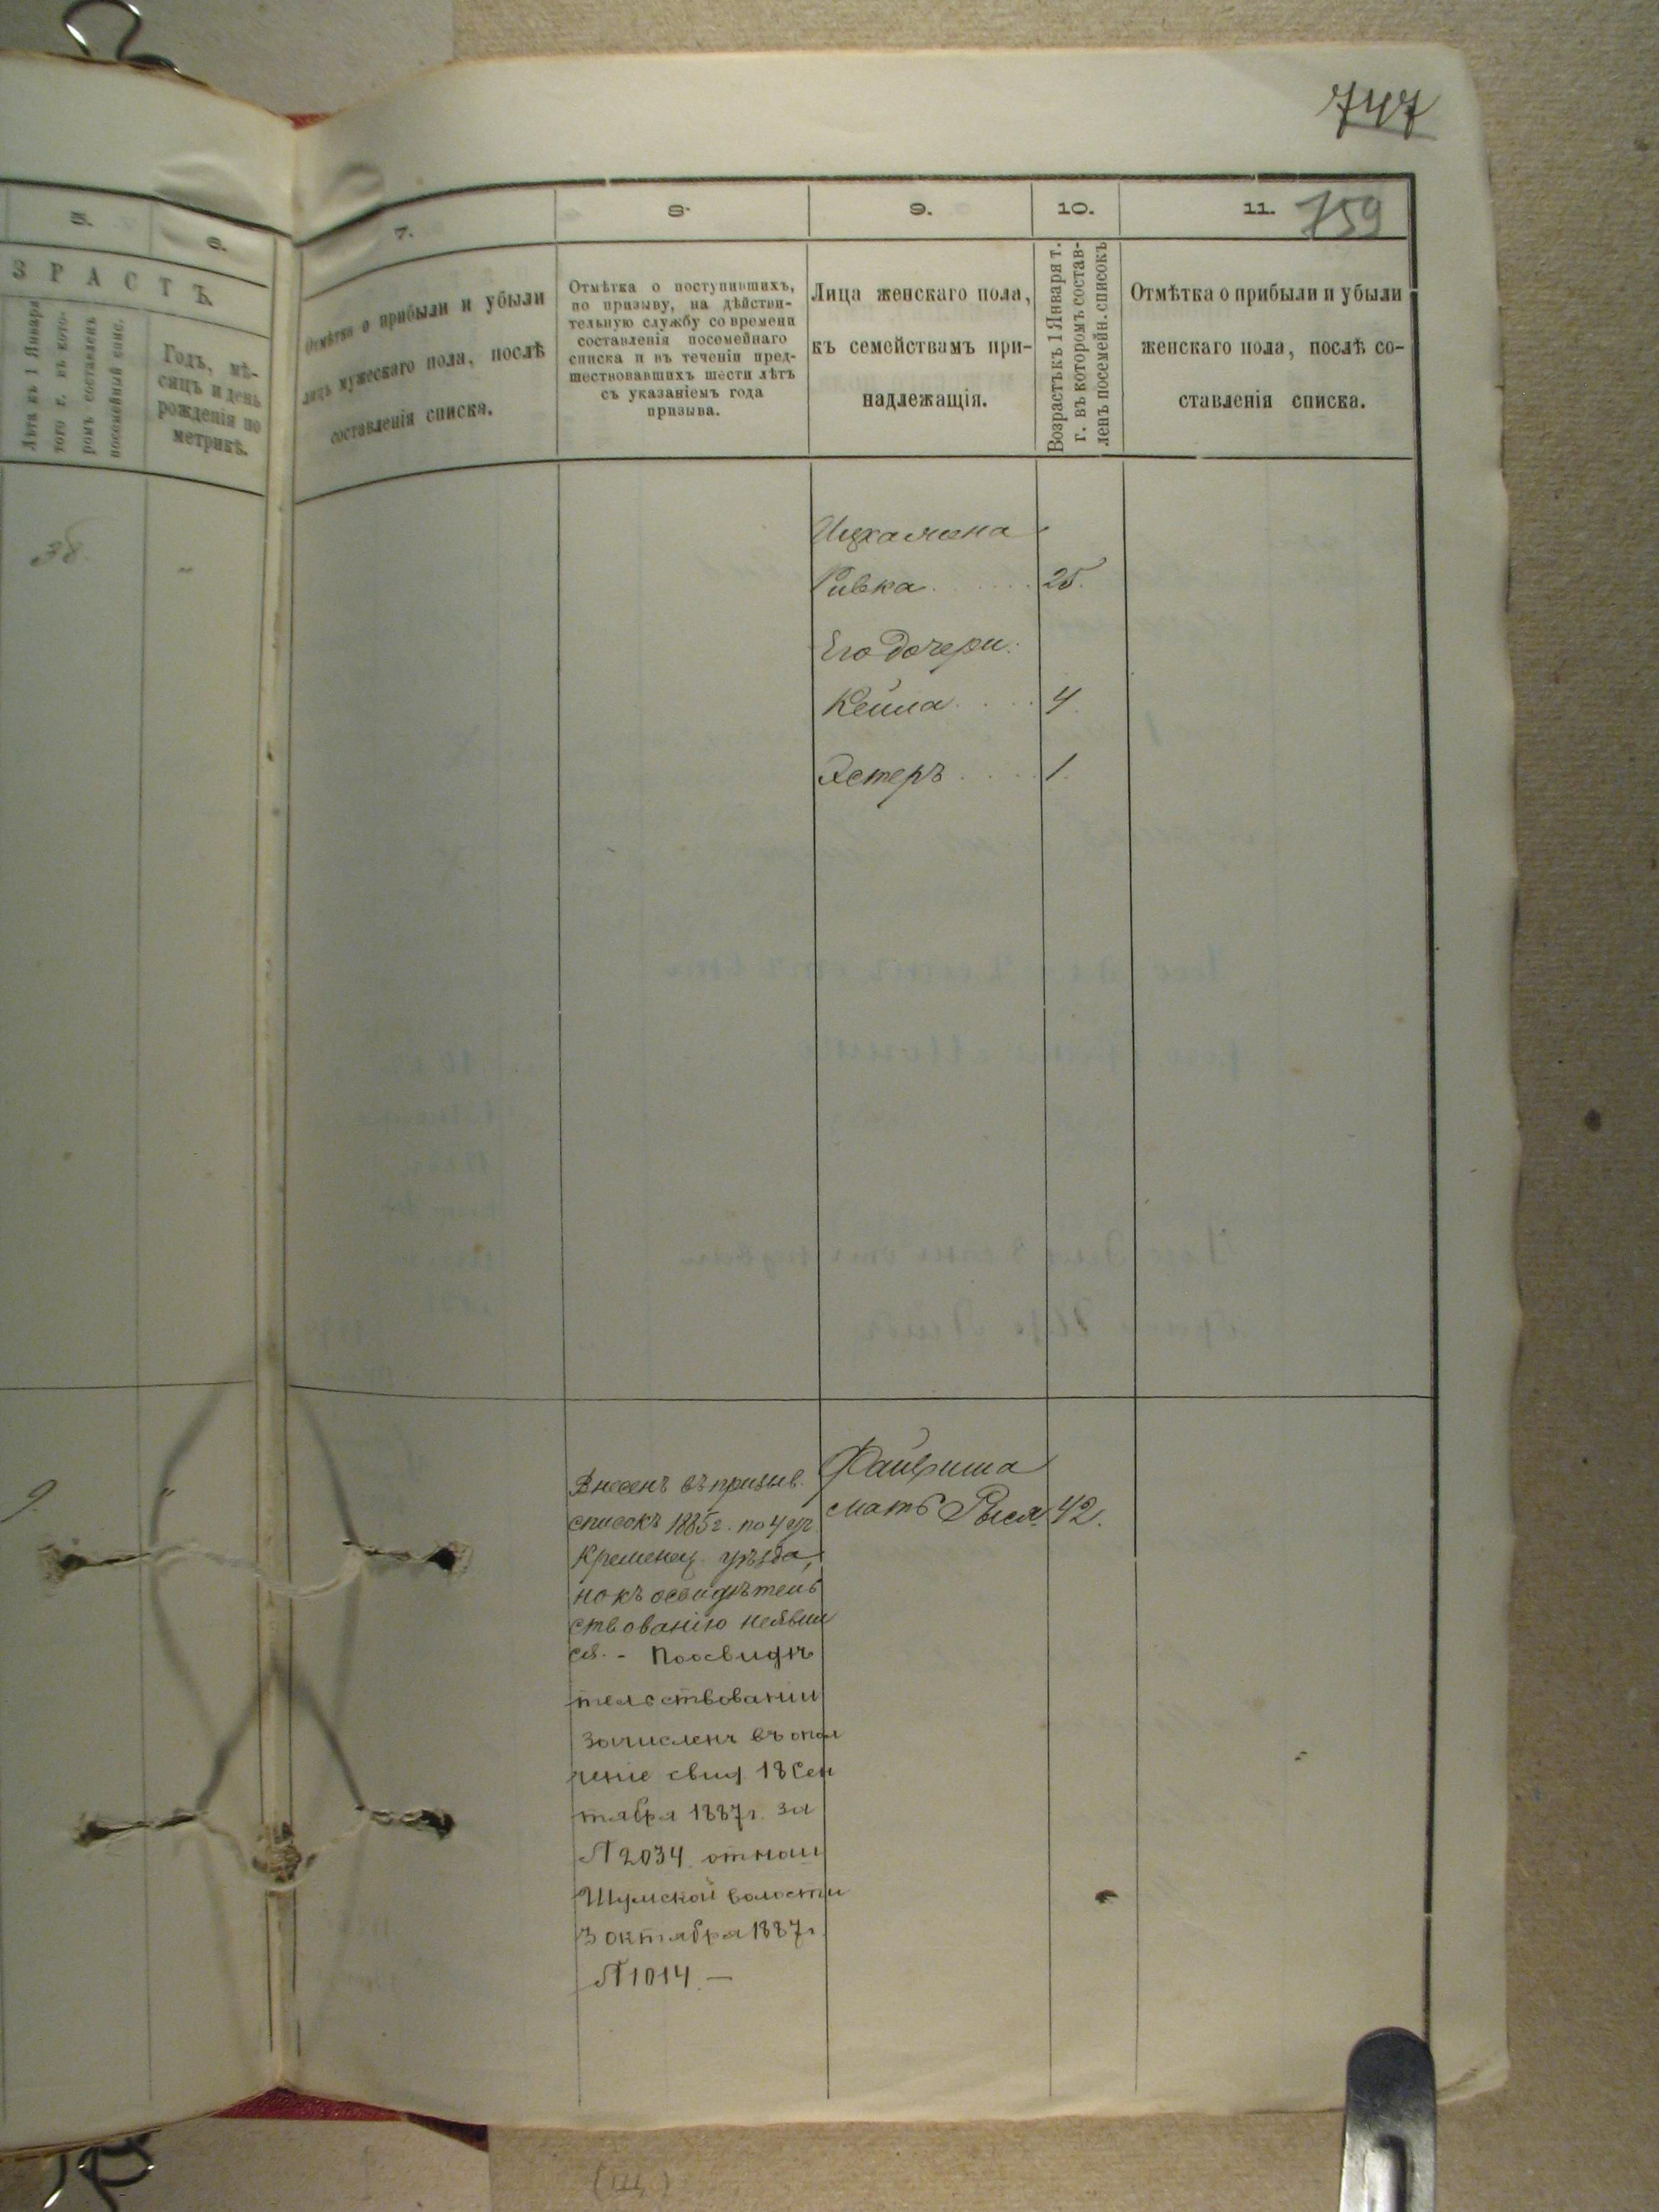 747
5.
6.
7.
8.
9.
10.
11.
159
ЗРАСТЪ
Лѣта къ 1 Января
того г. въ кото-
ромъ составленъ
посемейный спис.
Годъ, мѣ-
сяцъ и день
рожденія по
метрикѣ.
Отмѣтка о прибыли и убыли
лицъ мужескаго пола, послѣ
составленія списка.
Отмѣтка о поступившихъ,
по призыву, на дѣйстви-
тельную службу со времени
составленія посемейнаго
списка и въ теченіи пред-
шествовавшихъ шести лѣтъ
съ указаніемъ года
призыва.
Лица женскаго пола,
къ семействамъ при-
надлежащія.
Возрастъ къ 1 Января т.
г. въ которомъ состав-
ленъ посемейн. списокъ
Отмѣтка о прибыли и убыли
женскаго пола, послѣ со-
ставленія списка.
38.
жена
Ривка 25.
Его дочери:
Кейла 4
Эстеръ 1.
9
Внесенъ въ призыв.
списокъ 1885г. по 4 уч.
Кременец. уѣзда,
но къ освидѣтель
ствованію неявил
ся. - По освидѣ
тельствовании
зачисленъ въ опол
ченіе свид. 18 Сен
тября 1887г. за
№ 2034. отнош
Шумской волости
3 октября 1887г
№ 1014. —
Файвиша
мать Рыся 42.
(Ш,)